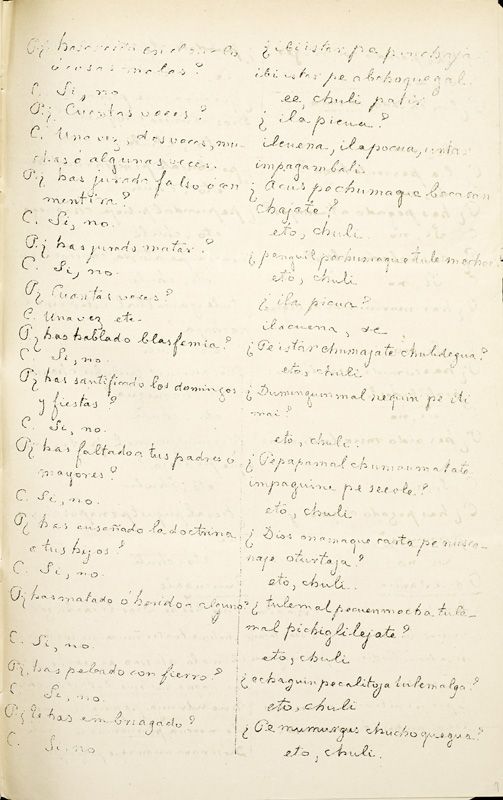 P. ¿
ó cosas malas?
C. Si, no.
P. ¿ Cuantas veces?
C. Una vez, dos veces, mu-
chas ó algunas veces.
P. ¿ has jurado falso con
mentira?
C. Si, no.
P. ¿ has jurado matar?
C. Si, no.
P. ¿ Cuantas veces?
C. Una vez etc.
P. ¿ has hablado blasfemia?
C. Si, no.
P. ¿ has santificado los domingos
y fiestas?
C. Si, no.
P. ¿ has faltado a tus padres ó
mayores?
C. Si, no.
P. ¿ has enseñado la doctrina
a tus hijos?
C. Si, no.
P. ¿ has matado ó herido a alguno?
C. Si, no.
P. ¿ has peleado con fierro?
C. Si, no.
P. ¿ te has embriagado?
C. Si, no.
¿
ibi istar pe abchoquegal
ee, chuli
¿ ila picua?
ilcuena, ila pocua, unta
impagambali.
¿ pochumaque
chajate?
eto, chuli
¿ pochumaque tule
eto, chuli
¿ ila picua?
ilacuena, &c
¿ Pe istar chumajate chulidegua?
eto, chuli
¿ Dumingunmal nequin pe iti
mai?
eto, chuli
¿ Pe papamal chumaumalate
impaguine pe secole?
eto, chuli
¿ Dios anamaque carta pe
oturtaja?
eto, chuli.
¿ tulemal pecuenmocha tule-
mal pichigli lejate?
eto, chuli
¿ echaguin pecalitoja tulemalga?
eto, chuli
¿ Pe mumurgus chuchoquegua?
eto, chuli.